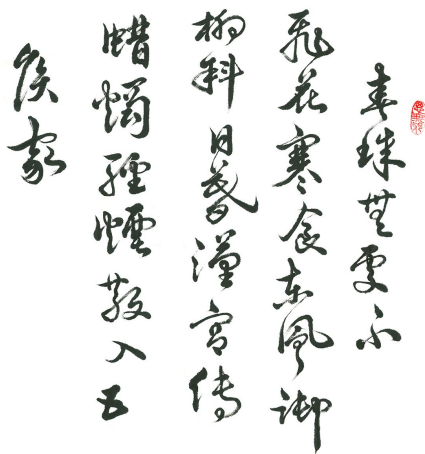 春城無處不
飛花寒食東風御
柳斜日暮漢宮傳
蜡燭輕煙散入五
侯家